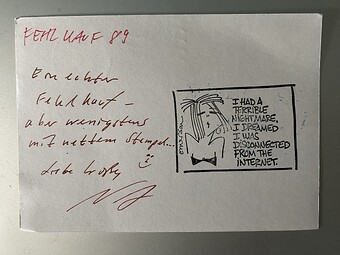 FEHLKAUF 89
Ein echter
Fehlkauf –
aber wenigstens
mit nettem Stempel...
Liebe Grüße
I HAD A
TERRIBLE
NIGHTMARE,
I DREAMED
I WAS
DISCONNECTED
FROM THE
INTERNET.